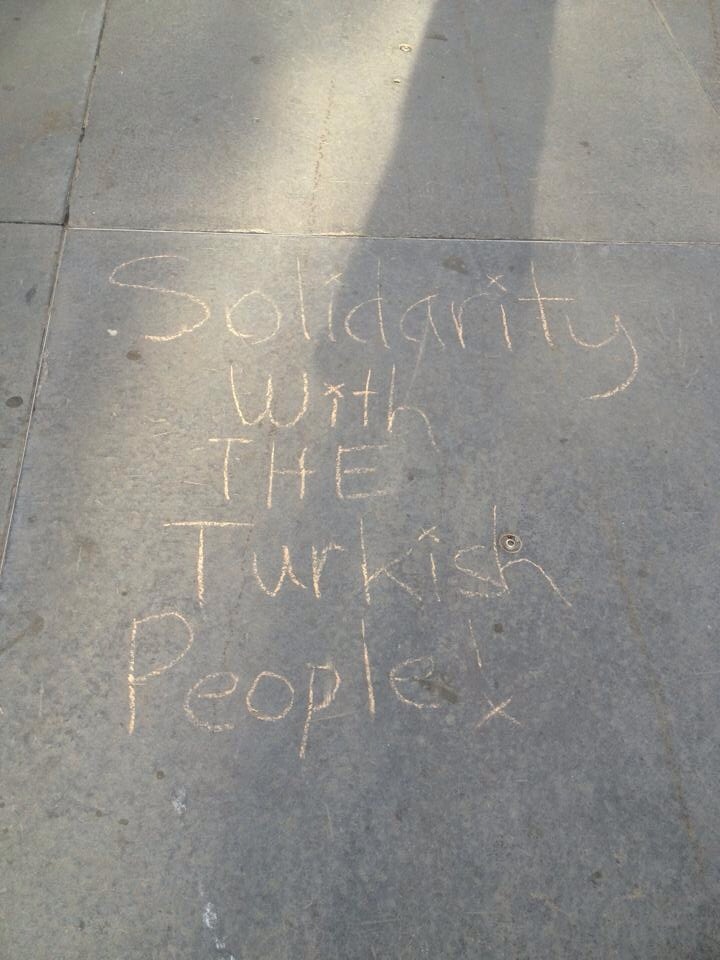 Solidarity
with
THE
Turkish
People!